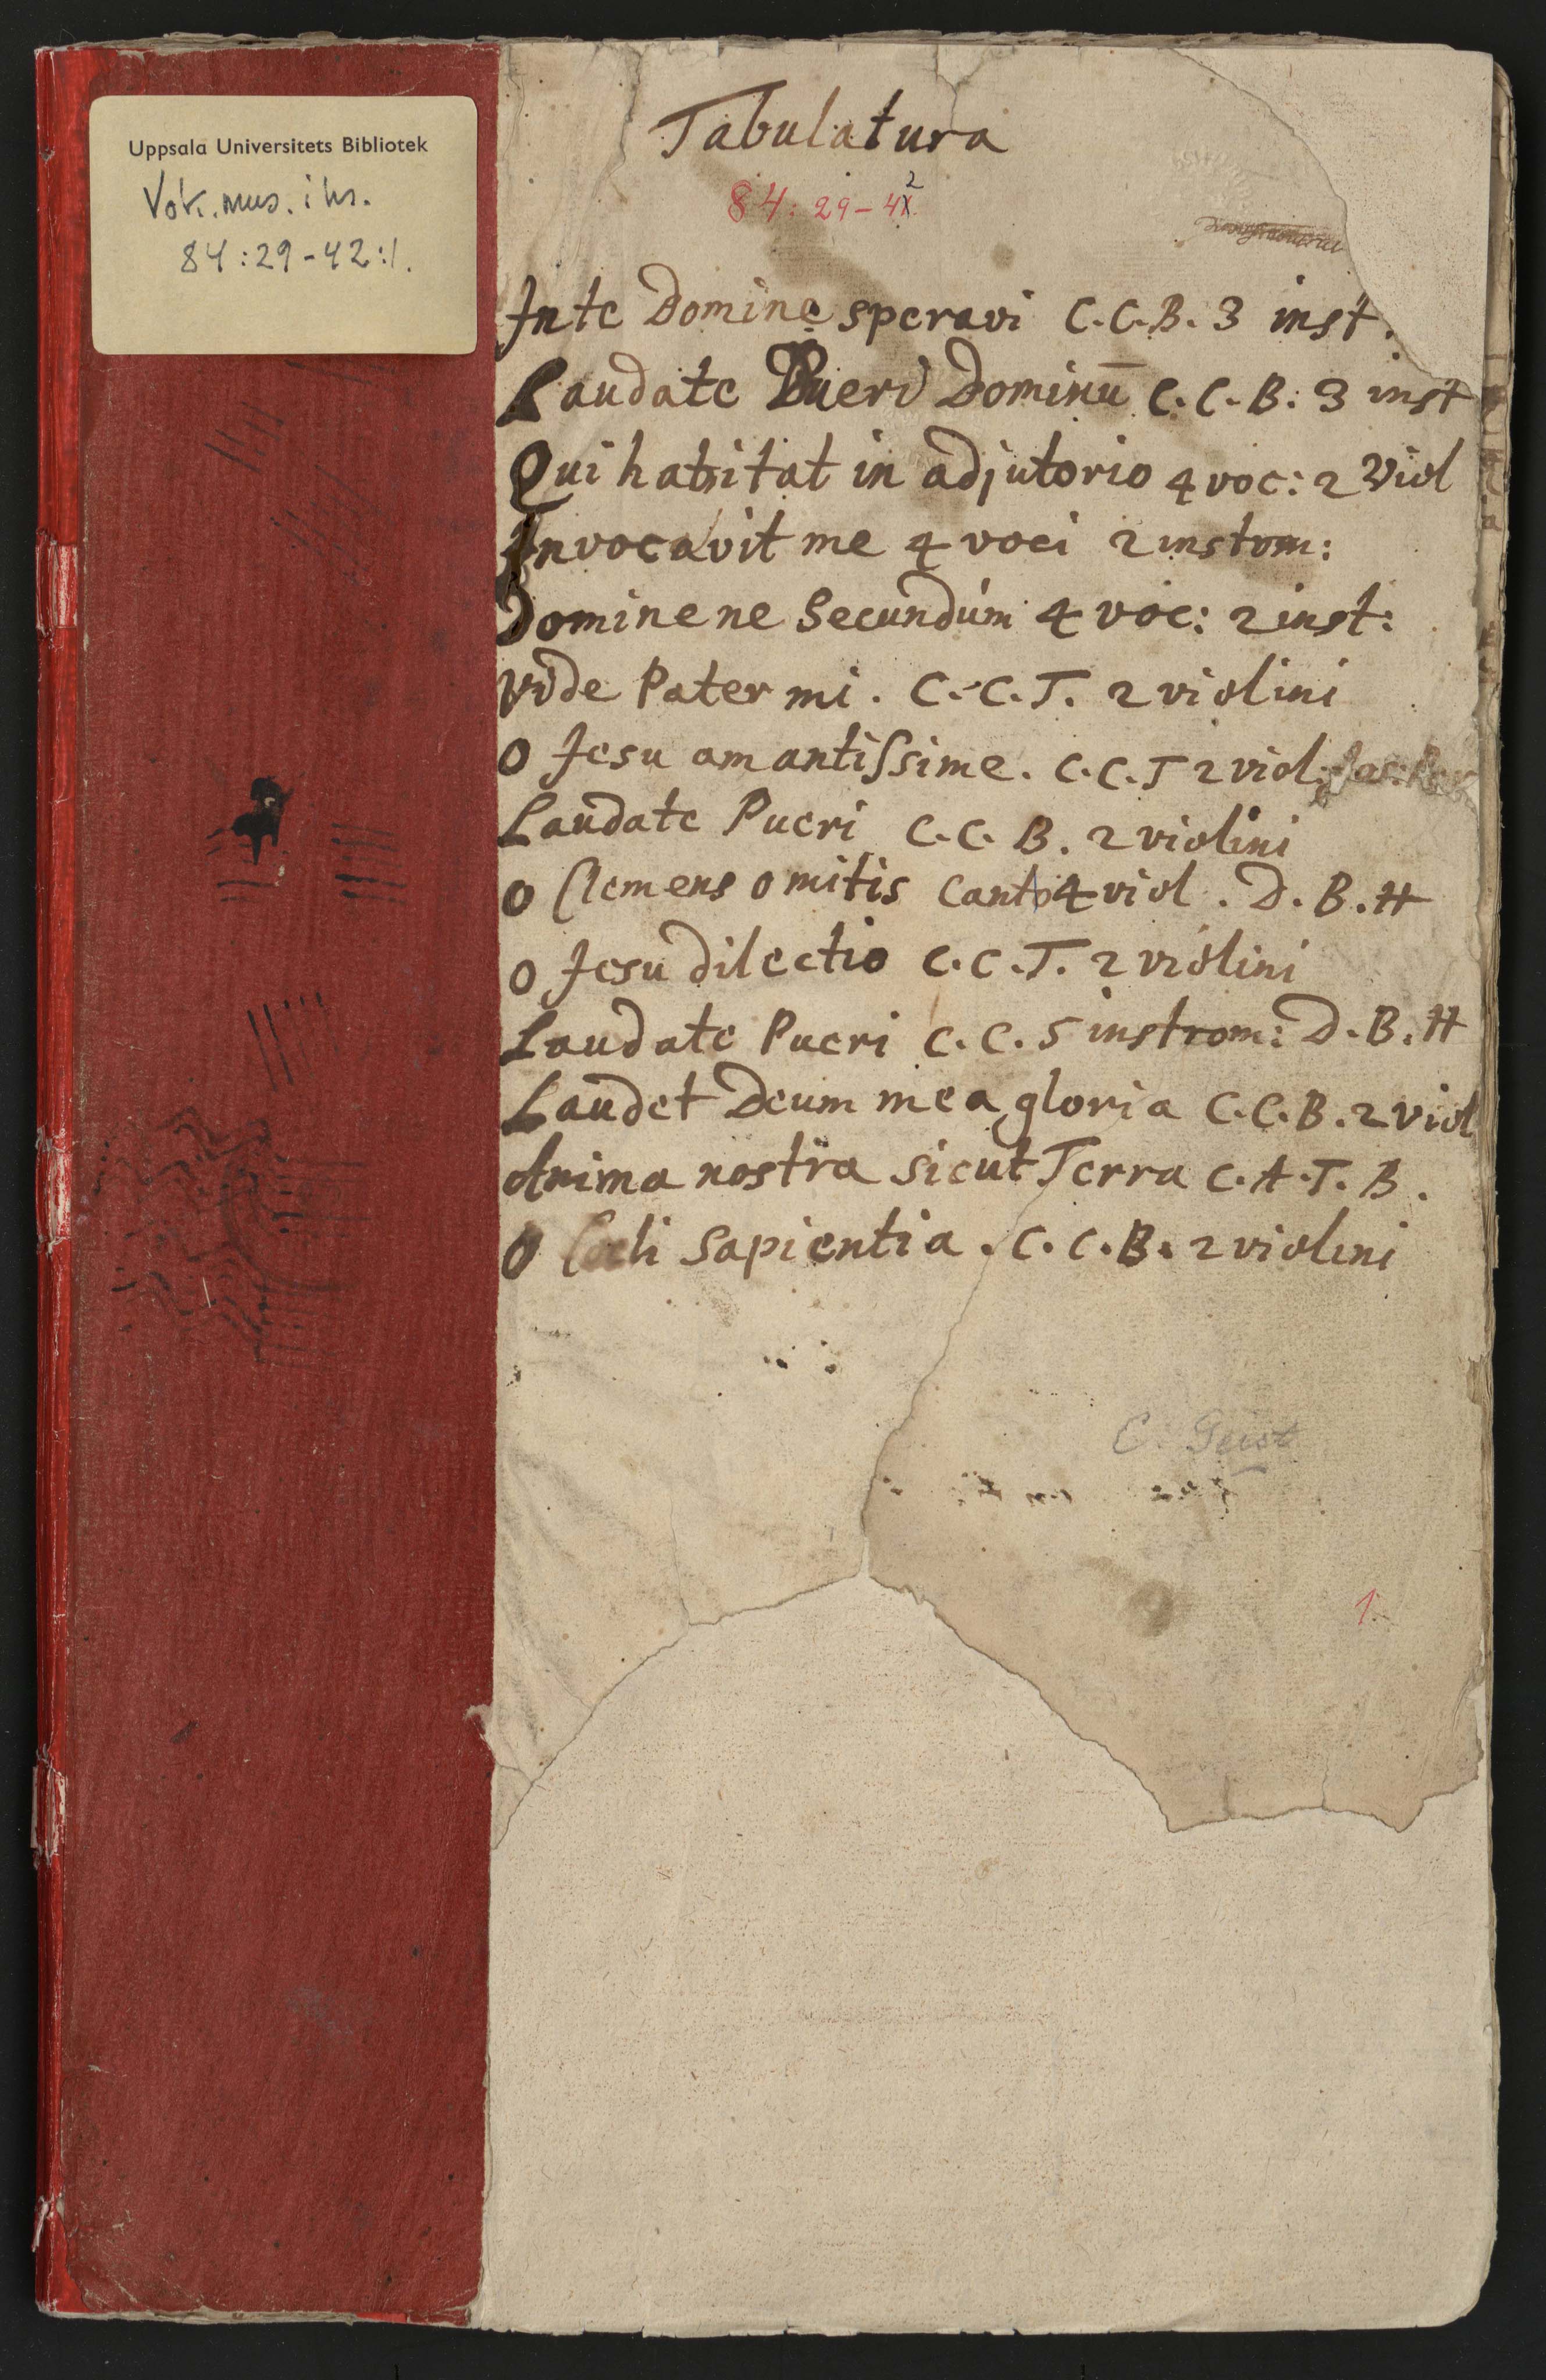 Uppsala Universitets Bibliotek
Vok. mus. i hs.
84:29-42:1.
Tabulatura
84:29-42
In te Domine speravi C.C.B. 3 inst.
Laudate Pueri Dominū C.C.B: 3 inst
Qui habitat in adjutorio 4 voc: 2 Viol
Invocavit me 4 voci 2 instrom:
Domine ne Secundúm 4 voc: 2 inst:
Vide Pater mi. C.C.T. 2 violini
O Jesu amantissime. C.C.T 2 viol:
Laudate Pueri C.C.B. 2 violini
O Clemens o mitis Canto 4 viol. D.B.H
O Jesu dilectio C.C.T. 2 violini
Laudate Pueri C.C. 5 instrom: D.B.H
Laudet Deum mea gloria C.C.B. 2 viol
Anima nostra sicut Terra C.A.T.B.
O Coeli Sapientia. C.C.B. 2 violini
C. Geist
1.